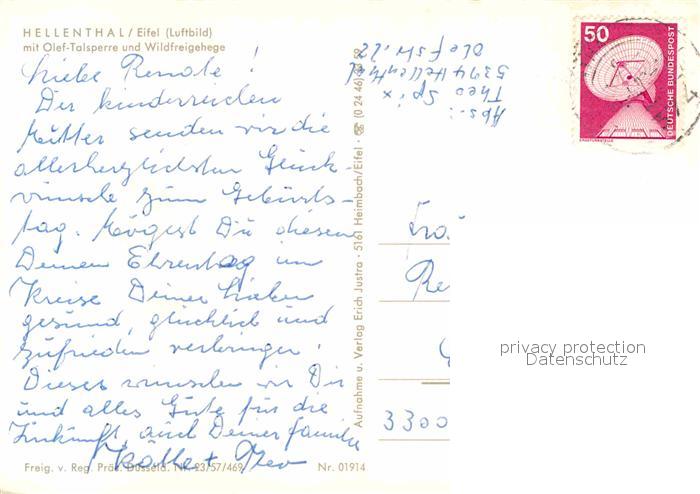 HELLENTHAL / Eifel (Luftbild)
mit Olef-Talsperre und Wildfreigehege
Liebe Renate!
Der kinderreichen
Mutter senden wir die
allerherzlichsten Glück-
wünsche zum Geburts-
tag. Mögest Du diesen
Deinen Ehrentag im
Kreise Deiner Lieben
gesund, glücklich und
zufrieden verbringen!
Dieses wünschen wir Dir
und alles Gute für die
Zukunft, auch Deiner Familie
Theo
Freig. v. Reg. Präs. Düsseld. Nr. 23/57/469
Nr. 01914
Aufnahme u. Verlag Erich Justra · 5161 Heimbach/Eifel · ☎ (0 24 46)
Abs.:
Theo Spix
5374 Hellenthal
Olefstr. 22
50
DEUTSCHE BUNDESPOST
ERDFUNKSTELLE
Re
3300
privacy protection
Datenschutz